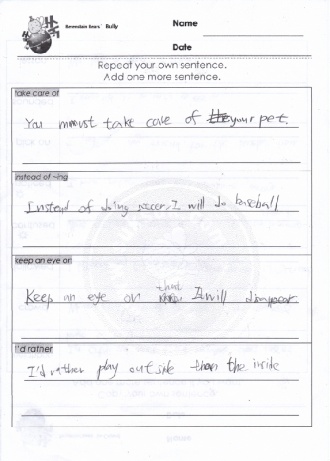 Berenstain Bears' Bully
Name
Date
Repeat your own sentence.
Add one more sentence.
take care of
You mmust take care of your pet.
instead of ~ing
Instead of doing soccer, I will do baseball
keep an eye on
that
Keep an eye on It will disappear
I'd rather
I'd rather play outside than the inside